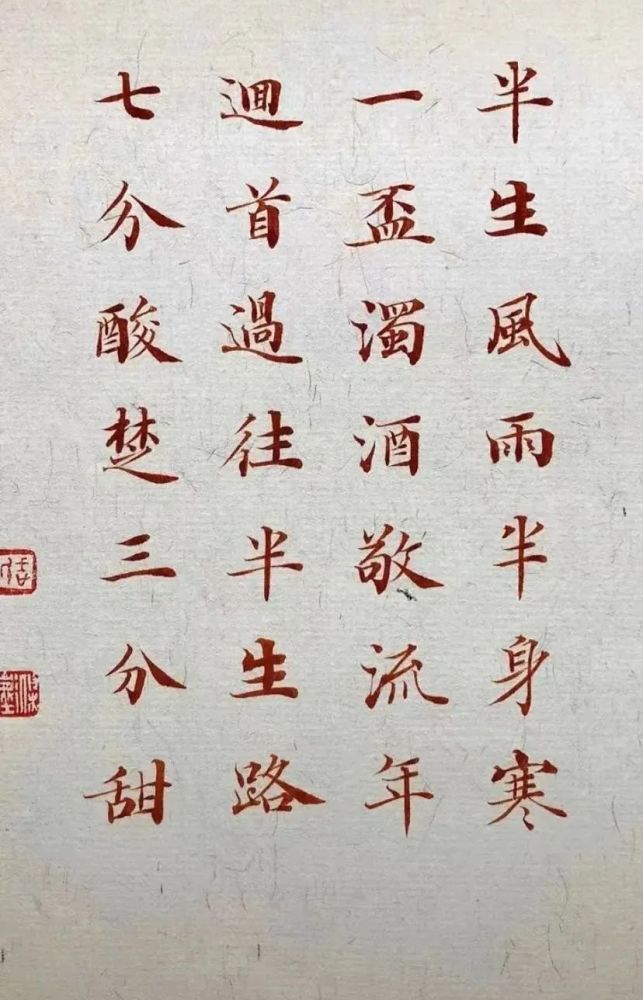 半生風雨半身寒
一盃濁酒敬流年
迴首過往半生路
七分酸楚三分甜